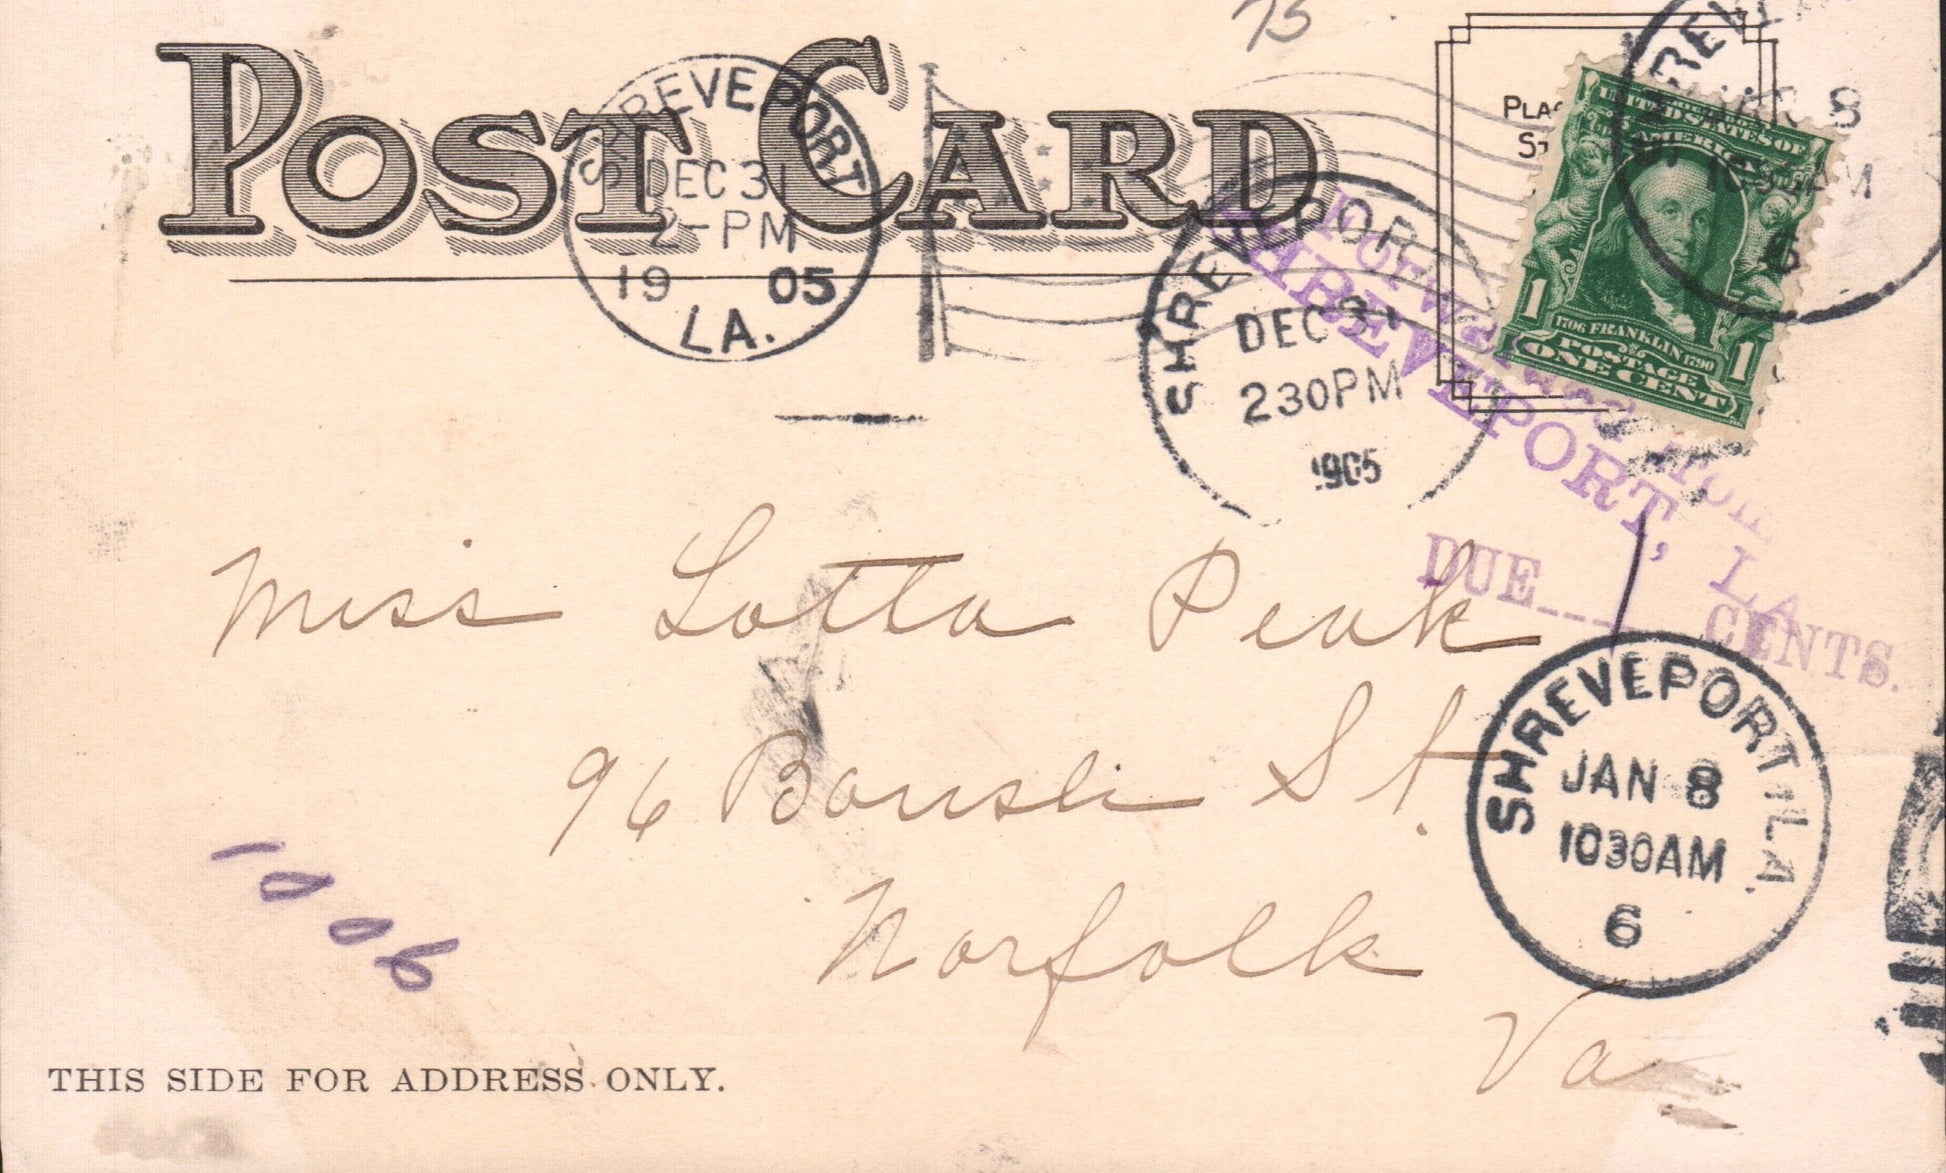 75
POST CARD
SHREVEPORT
DEC 31
2-PM
19 05
LA.
SHREVEPOR
DEC 31
230PM
1905
Forwarded From
SHREVEPORT, LA
DUE 1 CENTS.
PLAC
ST
SERIES 1902
UNITED STATES OF
AMERICA
1706 FRANKLIN 1790
POSTAGE
1 ONE CENT 1
REVE
8
1030AM
6
Miss Lotta Peak
96 Boush St.
Norfolk
Va
SHREVEPORT, LA.
JAN 8
1030AM
6
1006
THIS SIDE FOR ADDRESS ONLY.